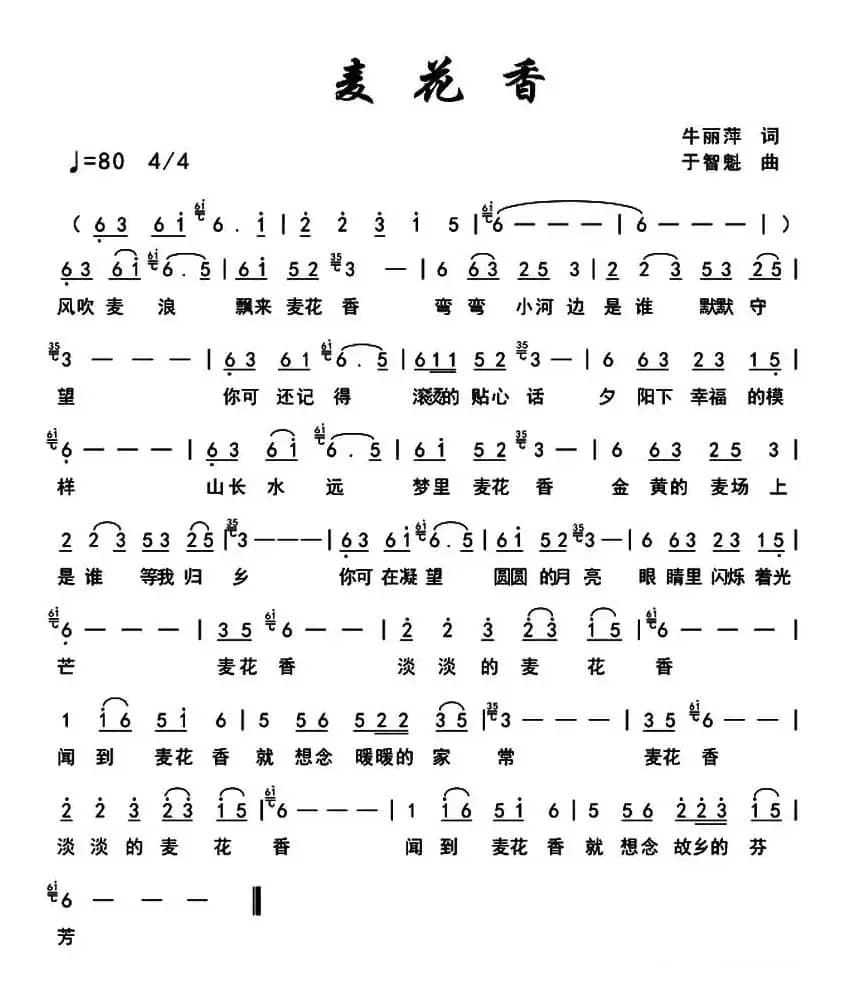 麦花香
牛丽萍 词
♩=80 4/4
于智魁 曲
( 6̣ 3 6 i 6 . i | 2̇ 2̇ 3̇ i 5 | 6 — — — | 6 — — — | )
6̣ 3 6 i 6 . 5 | 6 i 5 2 3 — | 6 6 3 2 5 3 | 2 2 3 5 3 2 5 |
风吹 麦 浪 飘来 麦花 香 弯 弯 小河 边 是 谁 默默 守
3 — — — | 6̣ 3 6 1 6 . 5 | 6 1 1 5 2 3 — | 6 6 3 2 3 1 5̣ |
望 你可 还记 得 滚烫的 贴心 话 夕 阳下 幸福 的模
6̣ — — — | 6̣ 3 6 i 6 . 5 | 6 i 5 2 3 — | 6 6 3 2 5 3 |
样 山长 水 远 梦里 麦花 香 金 黄的 麦场 上
2 2 3 5 3 2 5 | 3 — — — | 6̣ 3 6 i 6 . 5 | 6 i 5 2 3 — | 6 6 3 2 3 1 5̣ |
是 谁 等我 归 乡 你可 在凝 望 圆圆 的月 亮 眼 睛里 闪烁 着光
6̣ — — — | 3 5 6 — — | 2̇ 2̇ 3̇ 2̇ 3̇ i 5 | 6 — — — |
芒 麦花 香 淡 淡 的 麦 花 香
1 i 6 5 i 6 | 5 5 6 5 2 2 3 5 | 3 — — — | 3 5 6 — — |
闻 到 麦花 香 就 想念 暖暖的 家 常 麦花 香
2̇ 2̇ 3̇ 2̇ 3̇ i 5 | 6 — — — | 1 i 6 5 i 6 | 5 5 6 2̇ 2̇ 3̇ i 5 |
淡 淡 的 麦 花 香 闻 到 麦花 香 就 想念 故乡的 芬
6 — — —
芳